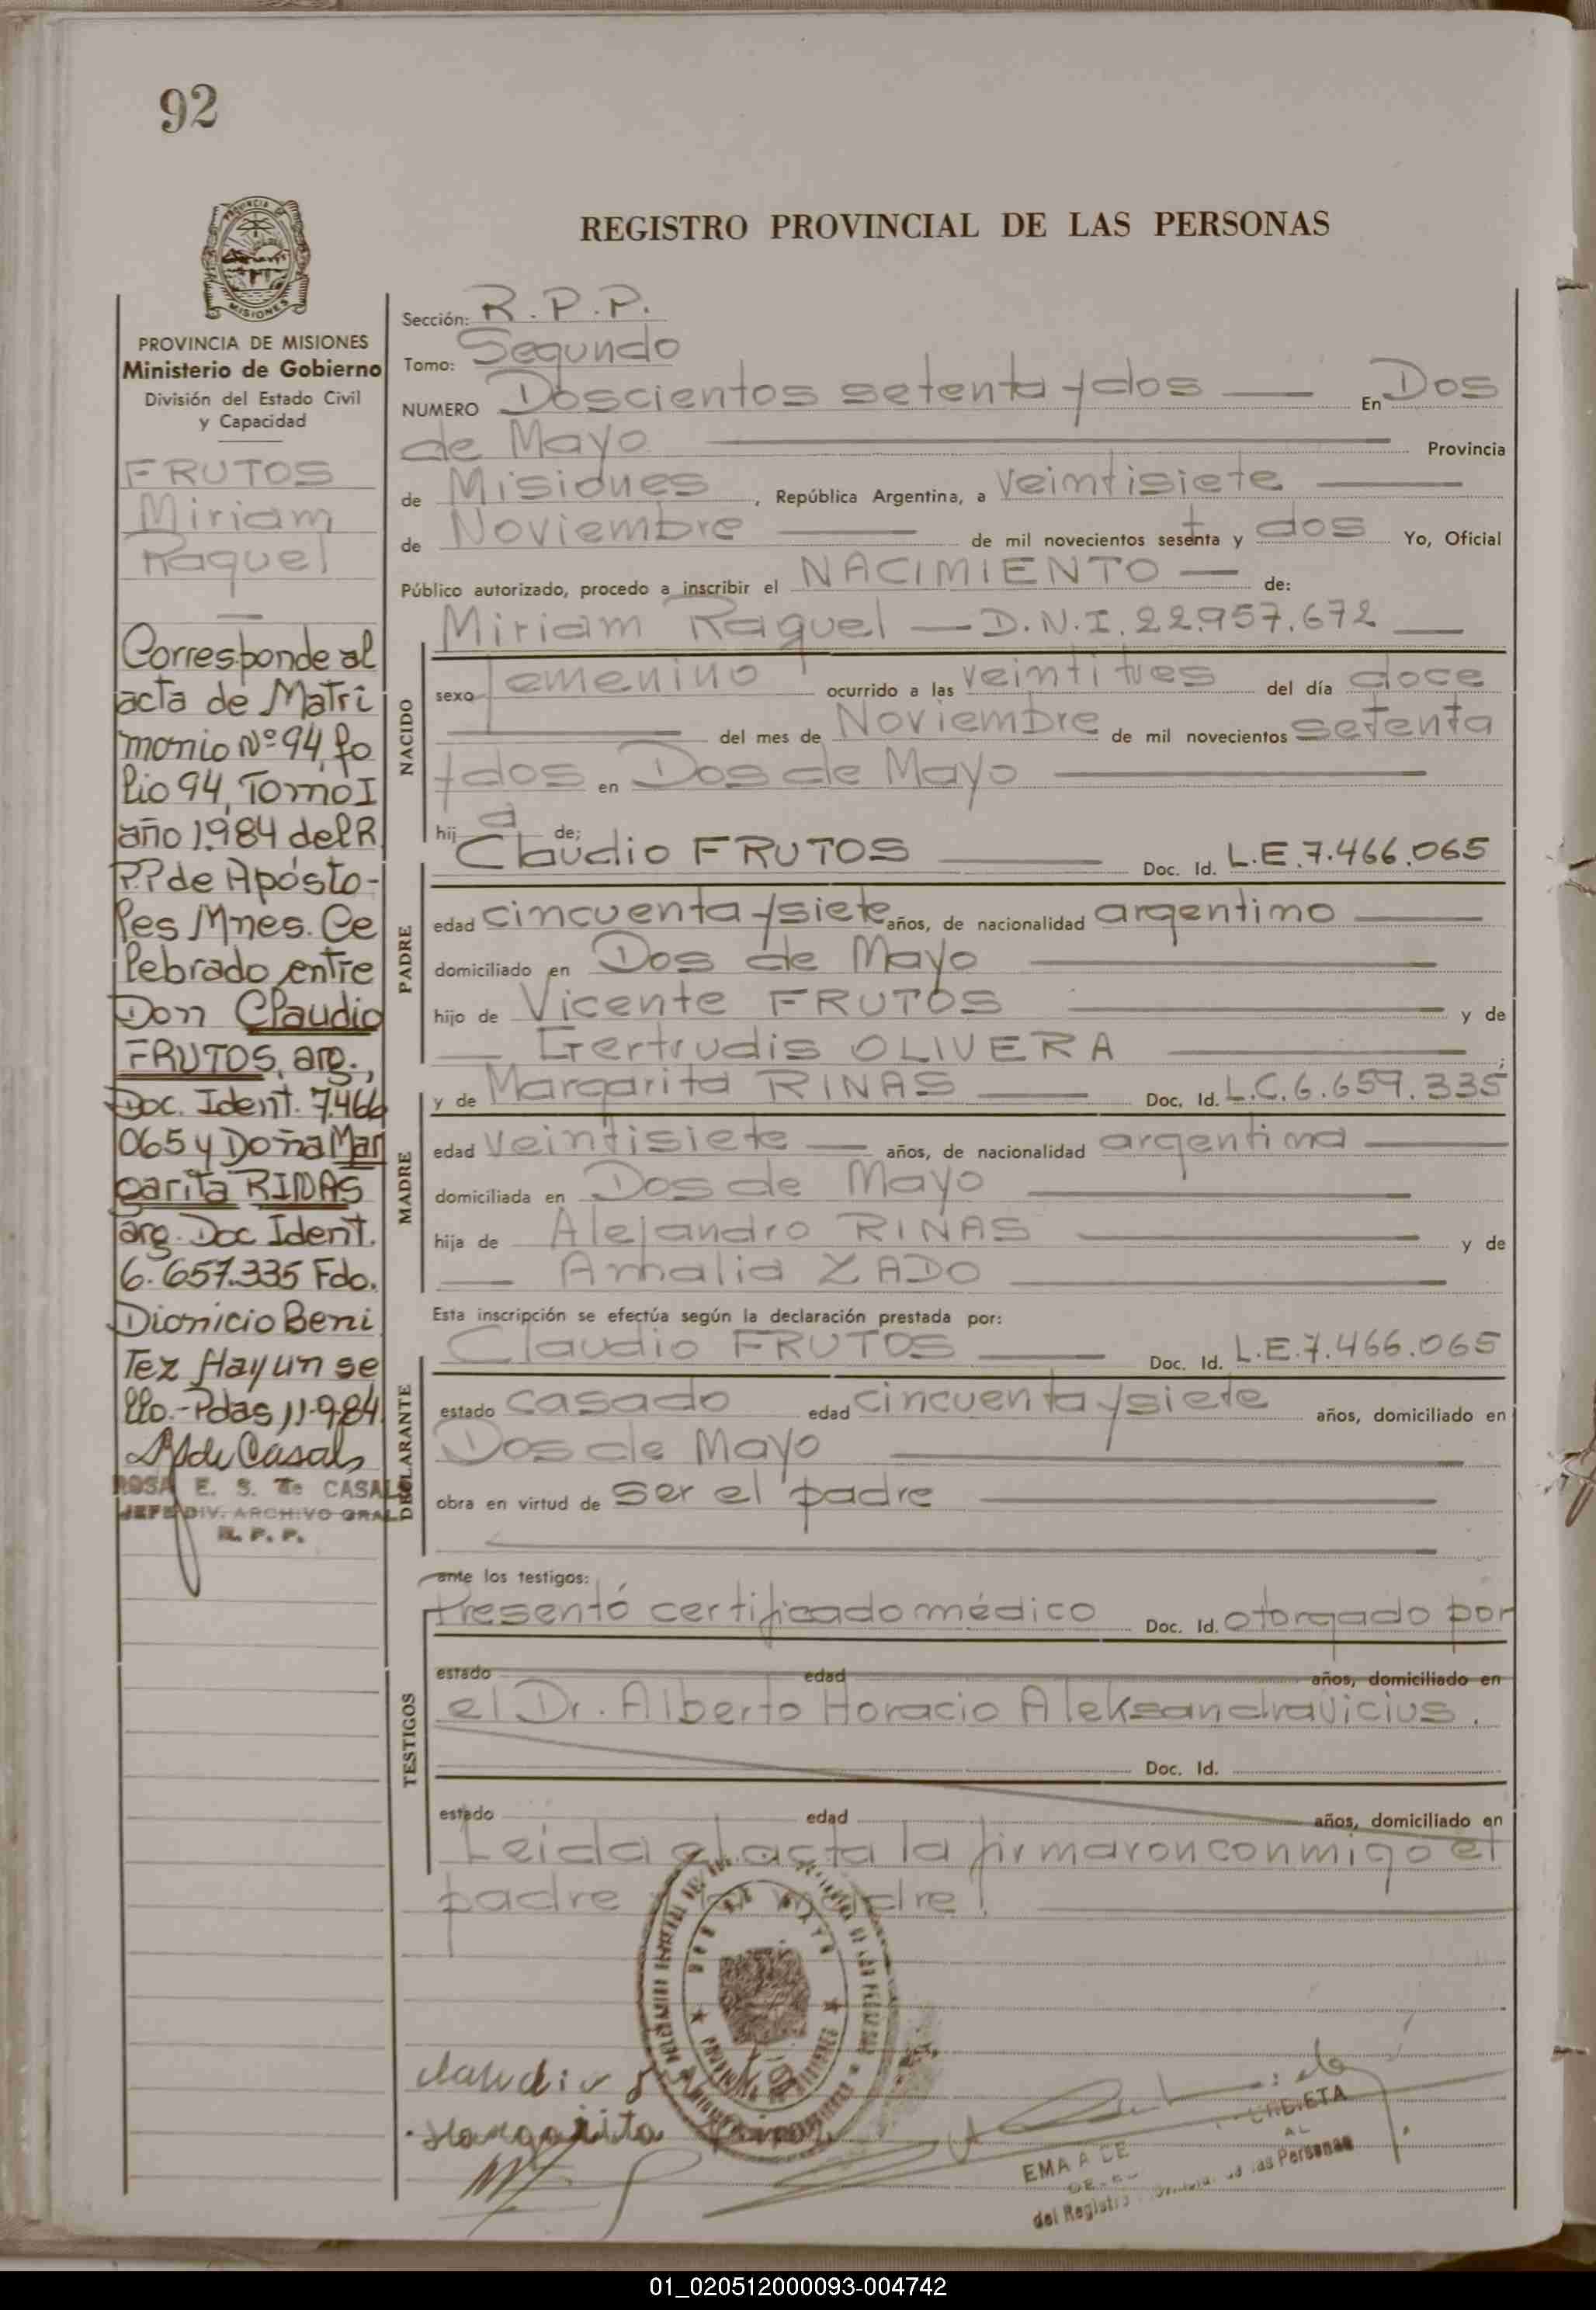 92
PROVINCIA DE MISIONES
Ministerio de Gobierno
División del Estado Civil
y Capacidad
FRUTOS
Miriam
Raquel
Corresponde al
acta de Matri
monio Nº 94, fo
lio 94, Tomo I
año 1984 del R
P.P de Apósto-
les Mnes. Ce
lebrado entre
Don Claudio
FRUTOS, arg.,
Doc. Ident. 7.466
065 y Doña Mar
garita RINAS
arg. Doc Ident.
6.657.335 Fdo.
Dionicio Beni
Tez Hay un se
llo.- Pdas 11-9-84
ROSA E. S. de CASALS
JEFE DIV. ARCHIVO GRAL
R. P. P.
REGISTRO PROVINCIAL DE LAS PERSONAS
Sección: R.P.P.
Tomo: Segundo
NUMERO Doscientos setenta y dos En Dos
de Mayo Provincia
de Misiones, República Argentina, a veintisiete
de Noviembre de mil novecientos setenta y dos Yo, Oficial
Público autorizado, procedo a inscribir el NACIMIENTO de:
Miriam Raquel — D.N.I. 22.957.672
NACIDO
sexo femenino ocurrido a las veintitres del día doce
del mes de Noviembre de mil novecientos setenta
y dos en Dos de Mayo
hija de: Claudio FRUTOS Doc. Id. L.E. 7.466.065
PADRE
edad cincuenta y siete años, de nacionalidad argentino
domiciliado en Dos de Mayo
hijo de Vicente FRUTOS y de
Gertrudis OLIVERA
y de Margarita RINAS Doc. Id. L.C. 6.657.335
MADRE
edad veintisiete años, de nacionalidad argentina
domiciliada en Dos de Mayo
hija de Alejandro RINAS y de
Amalia ZADO
Esta inscripción se efectúa según la declaración prestada por:
Claudio FRUTOS Doc. Id. L.E. 7.466.065
DECLARANTE
estado casado edad cincuenta y siete años, domiciliado en
Dos de Mayo
obra en virtud de ser el padre
ante los testigos:
Presentó certificado médico Doc. Id. otorgado por
TESTIGOS
estado edad años, domiciliado en
el Dr. Alberto Horacio Aleksandravicius.
Doc. Id.
estado edad años, domiciliado en
Leida el acta la firmaron conmigo el
padre y la madre.
Claudio
Margarita Rinas
EMA
del Registro de las Personas
01_020512000093-004742